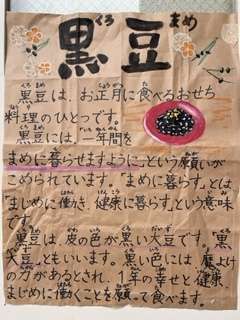 黒豆
黒豆は、お正月に食べるおせち
料理のひとつです。
黒豆には、一年間を
まめに暮らせますように、という願いが
こめられています。「まめに暮らす」とは
「まじめに働き、健康に暮らす」という意味
です。
黒豆は、皮の色が黒い大豆です。「黒
大豆」ともいいます。黒い色には魔よけ
の力があるとされ、1年の幸せと健康
まじめに働くことを願って食べます。